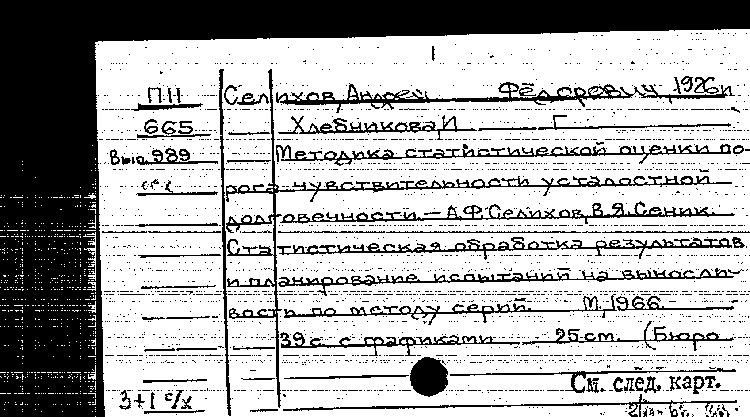 ПII Селихов, Андрей Фёдорович, 1926 и
665 Хлебникова, И Г
Вып 989 Методика статистической оценки по-
рога чувствительности усталостной
долговечности. — А.Ф. Селихов, В.Я. Сеник.
Статистическая обработка результатов
и планирование испытаний на выносли-
вость по методу серий. М, 1966.
39 с. с графиками 25 см. (Бюро
См. след. карт.
3+1 с/х